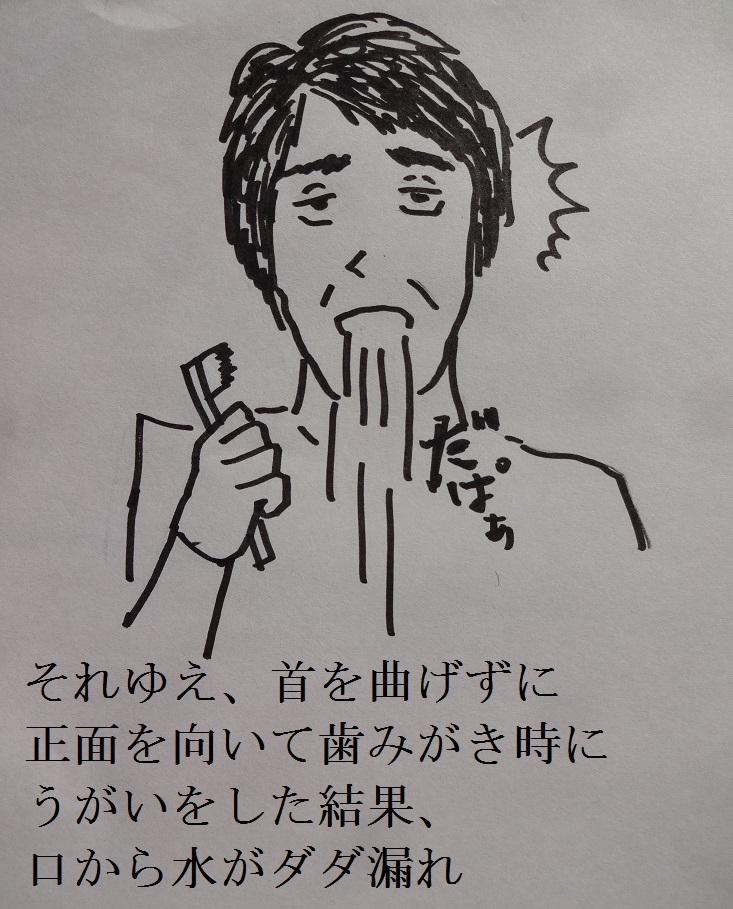 だぱぁ
それゆえ、首を曲げずに
正面を向いて歯みがき時に
うがいをした結果、
口から水がダダ漏れ